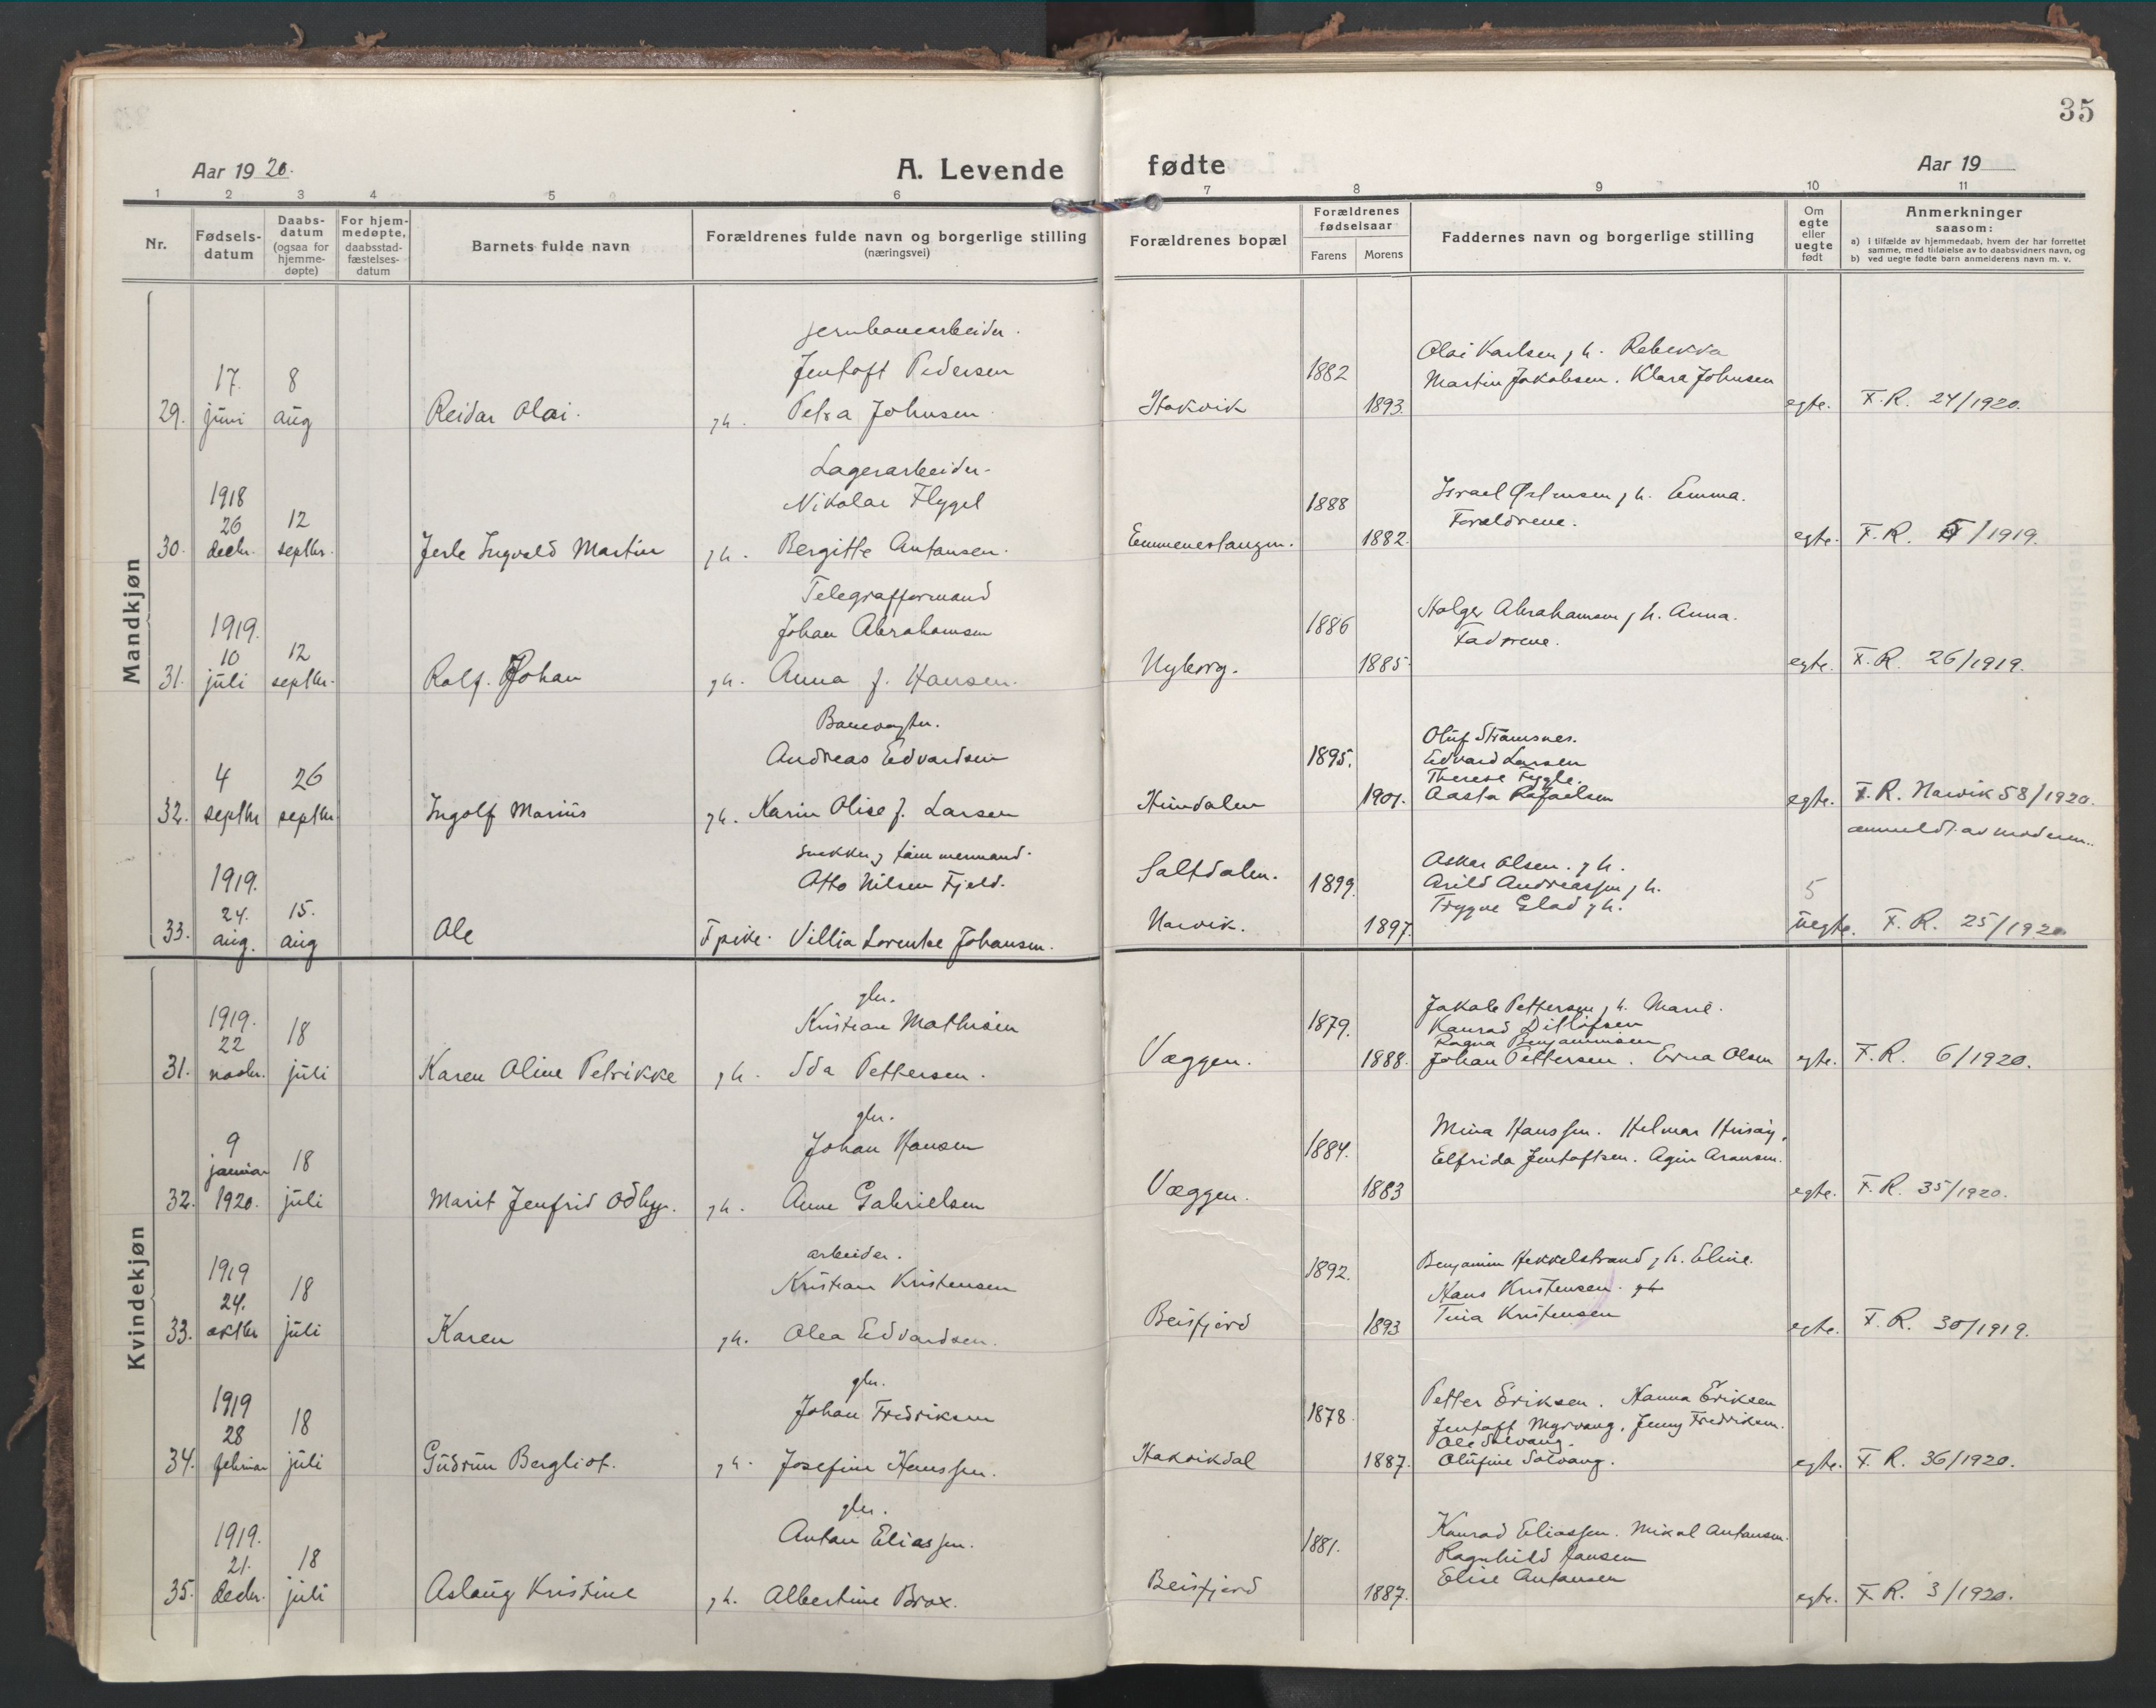 35
Aar 1920.
A. Levende fødte
Aar 19
1 2 3 4 5 6 7 8 9 10 11
Nr.
Fødsels-
datum
Daabs-
datum
(ogsaa for
hjemme-
døpte)
For hjem-
medøpte,
daabsstad-
fæstelses-
datum
Barnets fulde navn
Forældrenes fulde navn og borgerlige stilling
(næringsvei)
Forældrenes bopæl
Forældrenes
fødselsaar
Farens
Morens
Faddernes navn og borgerlige stilling
Om
egte
eller
uegte
født
Anmerkninger
saasom:
a) i tilfælde av hjemmedaab, hvem der har forrettet
samme, med tilføielse av to daabsvidners navn, og
b) ved uegte fødte barn anmelderens navn m. v.
Mandkjøn
29.
17.
juni
8
aug
Reidar Olai.
jernbanearbeider.
Jentoft Pedersen
gh. Petra Johnsen.
Hakvik
1882
1893.
Olai Karlsen, h. Rebekka
Martin Jakobsen. Klara Johnsen
egte.
F.R. 24/1920.
30.
1918
26
decbr.
12
septbr.
Jerle Ingvald Martin
Lagerarbeider.
Nikolai Flygel
gh. Bergitte Antonsen.
Emmenestangen.
1888
1882.
Israel Østensen, h. Emma.
Forældrene.
egte.
F.R. /1919.
31.
1919.
10
juli
12
septbr.
Rolf. Johan
Telegrafformand
Johan Abrahamsen
gh. Anna f. Hansen.
Nyborg.
1886
1885
Holger Abrahamsen, h. Anna.
egte.
F.R. 26/1919.
32.
4
septbr
26
septbr
Ingolf Marius
Banevogter.
Andreas Edvardsen
gh. Karin Olise f. Larsen
Hundalen
1895.
1901.
Oluf Strømsnes.
Edvard Larsen
Therese Fygle.
Aasta Rafaelsen
egte.
F.R. Narvik 58/1920.
anmeldt av moderen.
33.
1919.
24.
aug.
15.
aug
Ole
snekker, tømmermand.
Otto Nilsen Fjeld.
F pike. Villia Lorentse Johansen.
Saltdalen.
Narvik.
1899.
1897.
Oskar Olsen. g h.
Arild Andreassen, h.
Trygve Glad g h.
5
uegte.
F.R. 25/1920
Kvindekjøn
31.
1919.
22
novbr.
18
juli
Karen Oline Petrikke
gbr.
Kristian Mathisen
gh. Ida Pettersen.
Væggen.
1879.
1888.
Jakob Pettersen, h. Marie.
Konrad Ditlifsen
Ragna Benjaminsen
Johan Pettersen. Erna Olsen
egte.
F.R. 6/1920.
32.
9
januar
1920.
18
juli
Marit Jenfrid Odbjg.
gbr.
Johan Hansen
gh. Anne Gabrielsen
Væggen.
1884.
1883
Mina Hanssen. Helmar
Elfrida Jentoftsen. Agin Aronsen.
egte.
F.R. 35/1920.
33.
1919
24.
oktbr
18
juli
Karen
arbeider.
Kristian Kristensen
gh. Olea Edvardsen.
Beisfjord
1892.
1893
Benjamin Hekkelstrand, h. Eline.
Hans Kristensen. gh
Tina Kristensen
egte.
F.R. 30/1919.
34.
1919
28
februar
18
juli
Gudrun Bergliot.
gbr.
Johan Fredriksen
gh. Josefine Hanssen.
Hakvikdal
1878
1887.
Petter Eriksen. Hanna Eriksen
Jentoft Myrvang, Jenny Fredriksen.
Ole Solvang.
Olufine Solvang.
egte.
F.R. 36/1920.
35.
1919.
21.
decbr.
18
juli
Aslaug Kristine
gbr.
Anton Eliassen.
gh. Albertine Brox.
Beisfjord
1881.
1887.
Konrad Eliassen. Mikal Antonsen.
Ragnhild Hansen
Elise Antonsen
egte.
F.R. 3/1920.